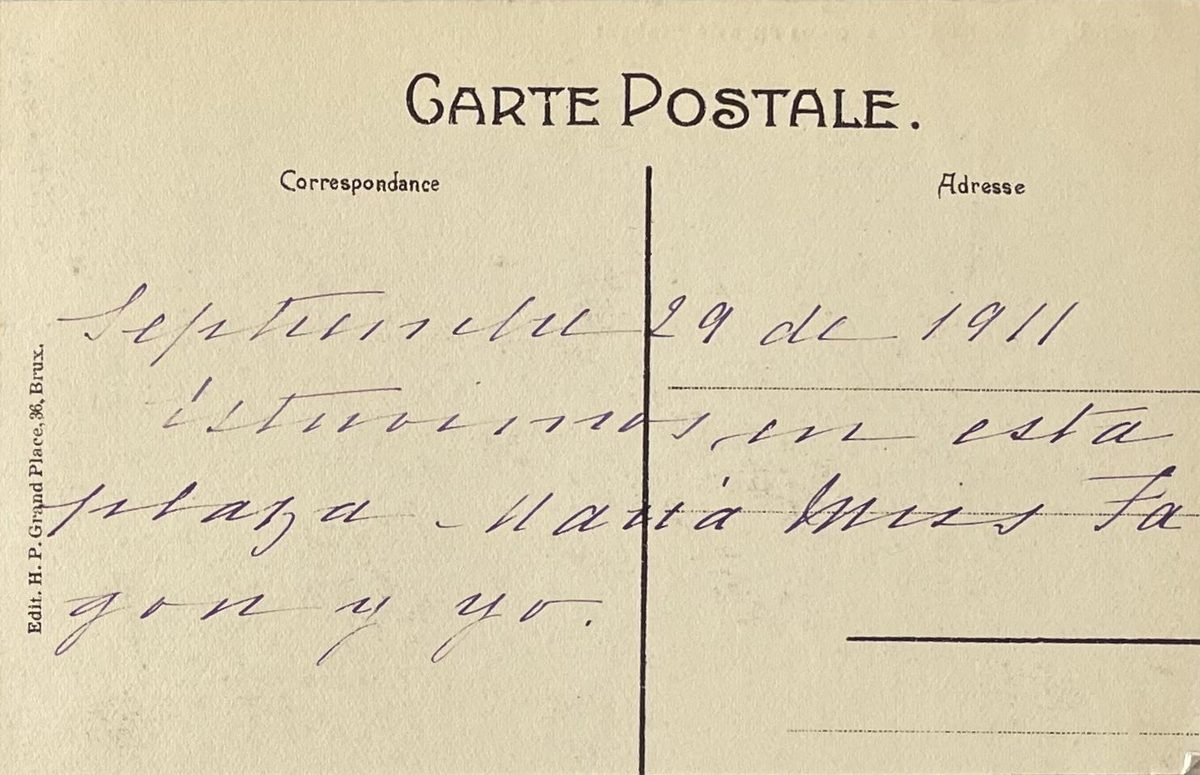 CARTE POSTALE.
Correspondance
Adresse
Septiembre 29 de 1911
Estuvimos en esta
plaza María Miss Fa
gon y yo.
Edit. H. P. Grand Place, 36, Brux.